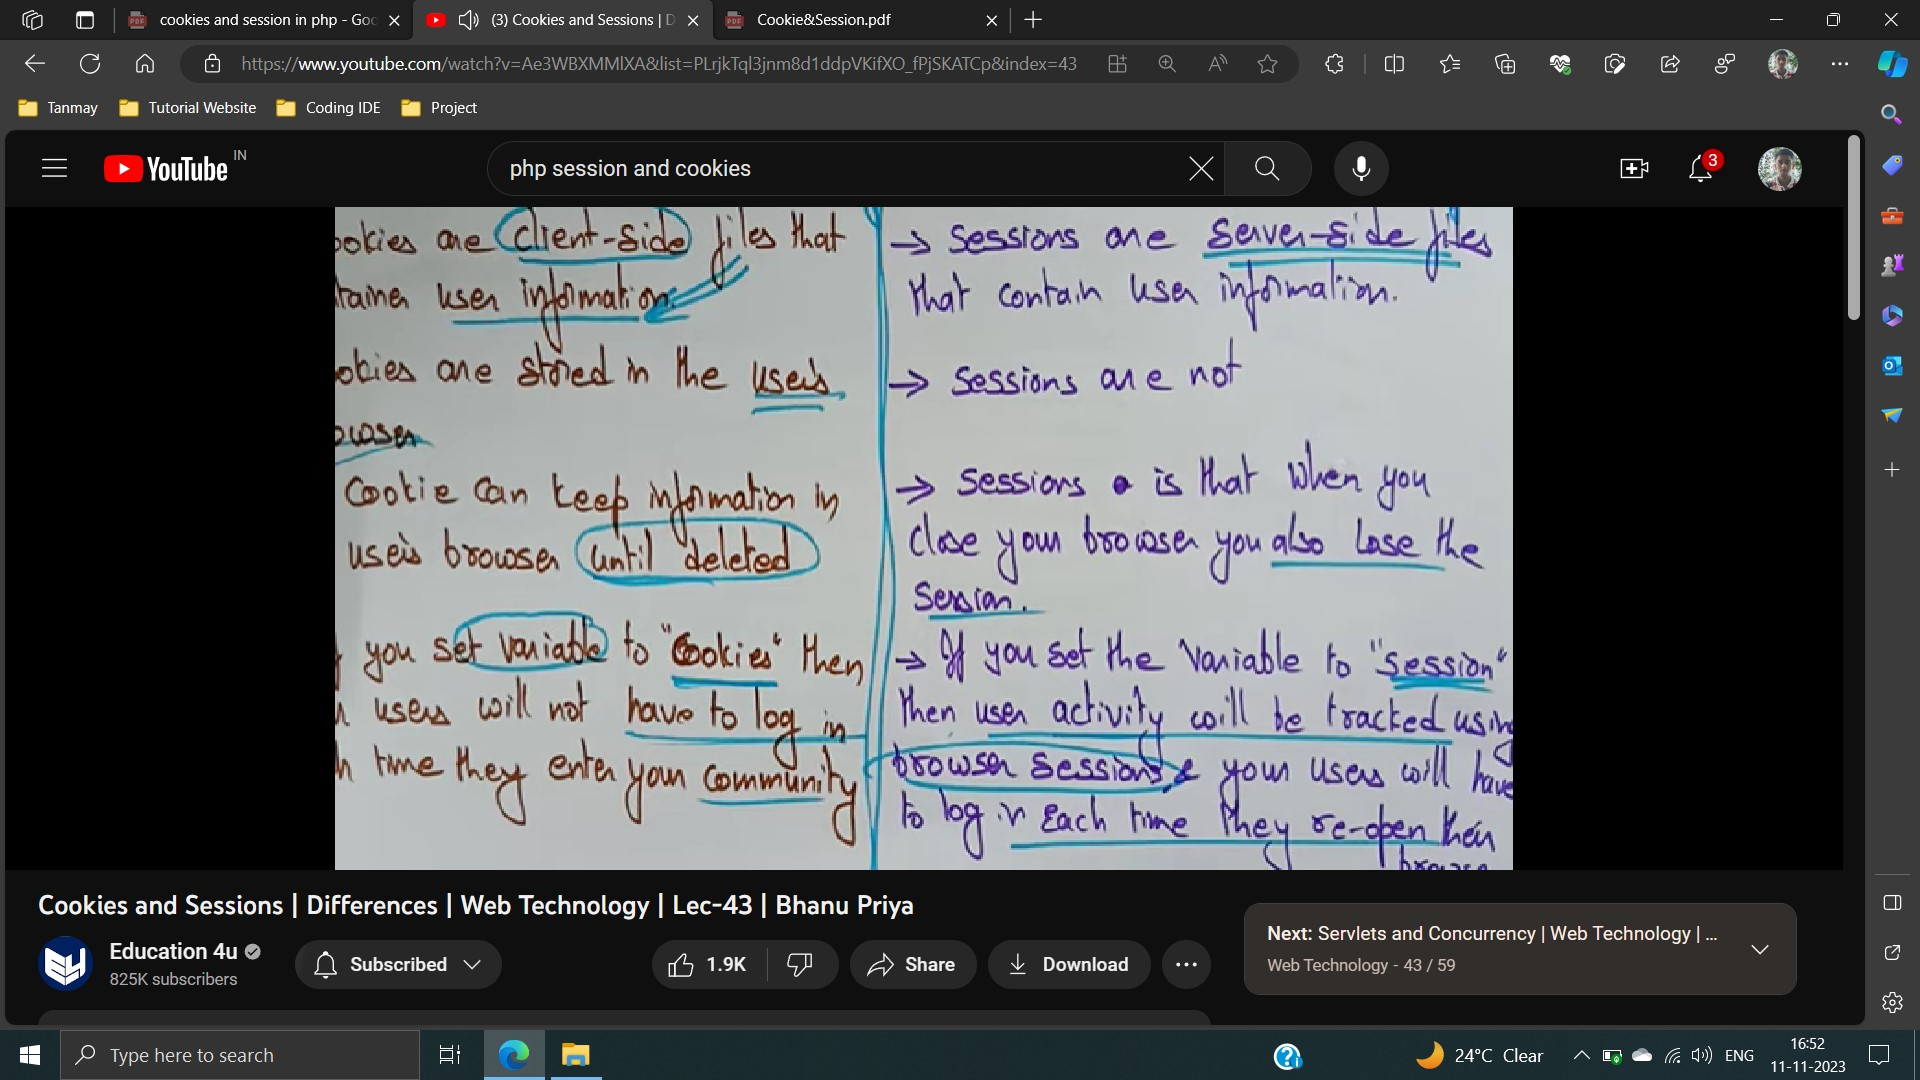 cookies and session in php - Goo
(3) Cookies and Sessions | D
Cookie&Session.pdf
https://www.youtube.com/watch?v=Ae3WBXMMlXA&list=PLrjkTql3jnm8d1ddpVKifXO_fPjSKATCp&index=43
Tanmay
Tutorial Website
Coding IDE
Project
YouTube IN
php session and cookies
3
ookies are client-side files that
tainer user information.
ookies are stored in the user's
owser
Cookie Can keep information in
user's browser until deleted
you set variable to "Cookies" then
users will not have to log in
h time they enter your community
→ Sessions are server-side files
that contain user information.
→ Sessions are not
→ Sessions is that when you
close your browser you also lose the
Session.
→ If you set the variable to "session"
then user activity will be tracked using
browser sessions & your users will have
to log in Each time they re-open their
Cookies and Sessions | Differences | Web Technology | Lec-43 | Bhanu Priya
Education 4u
825K subscribers
Subscribed
1.9K
Share
Download
Next: Servlets and Concurrency | Web Technology | ...
Web Technology - 43 / 59
Type here to search
24°C Clear
ENG
16:52
11-11-2023